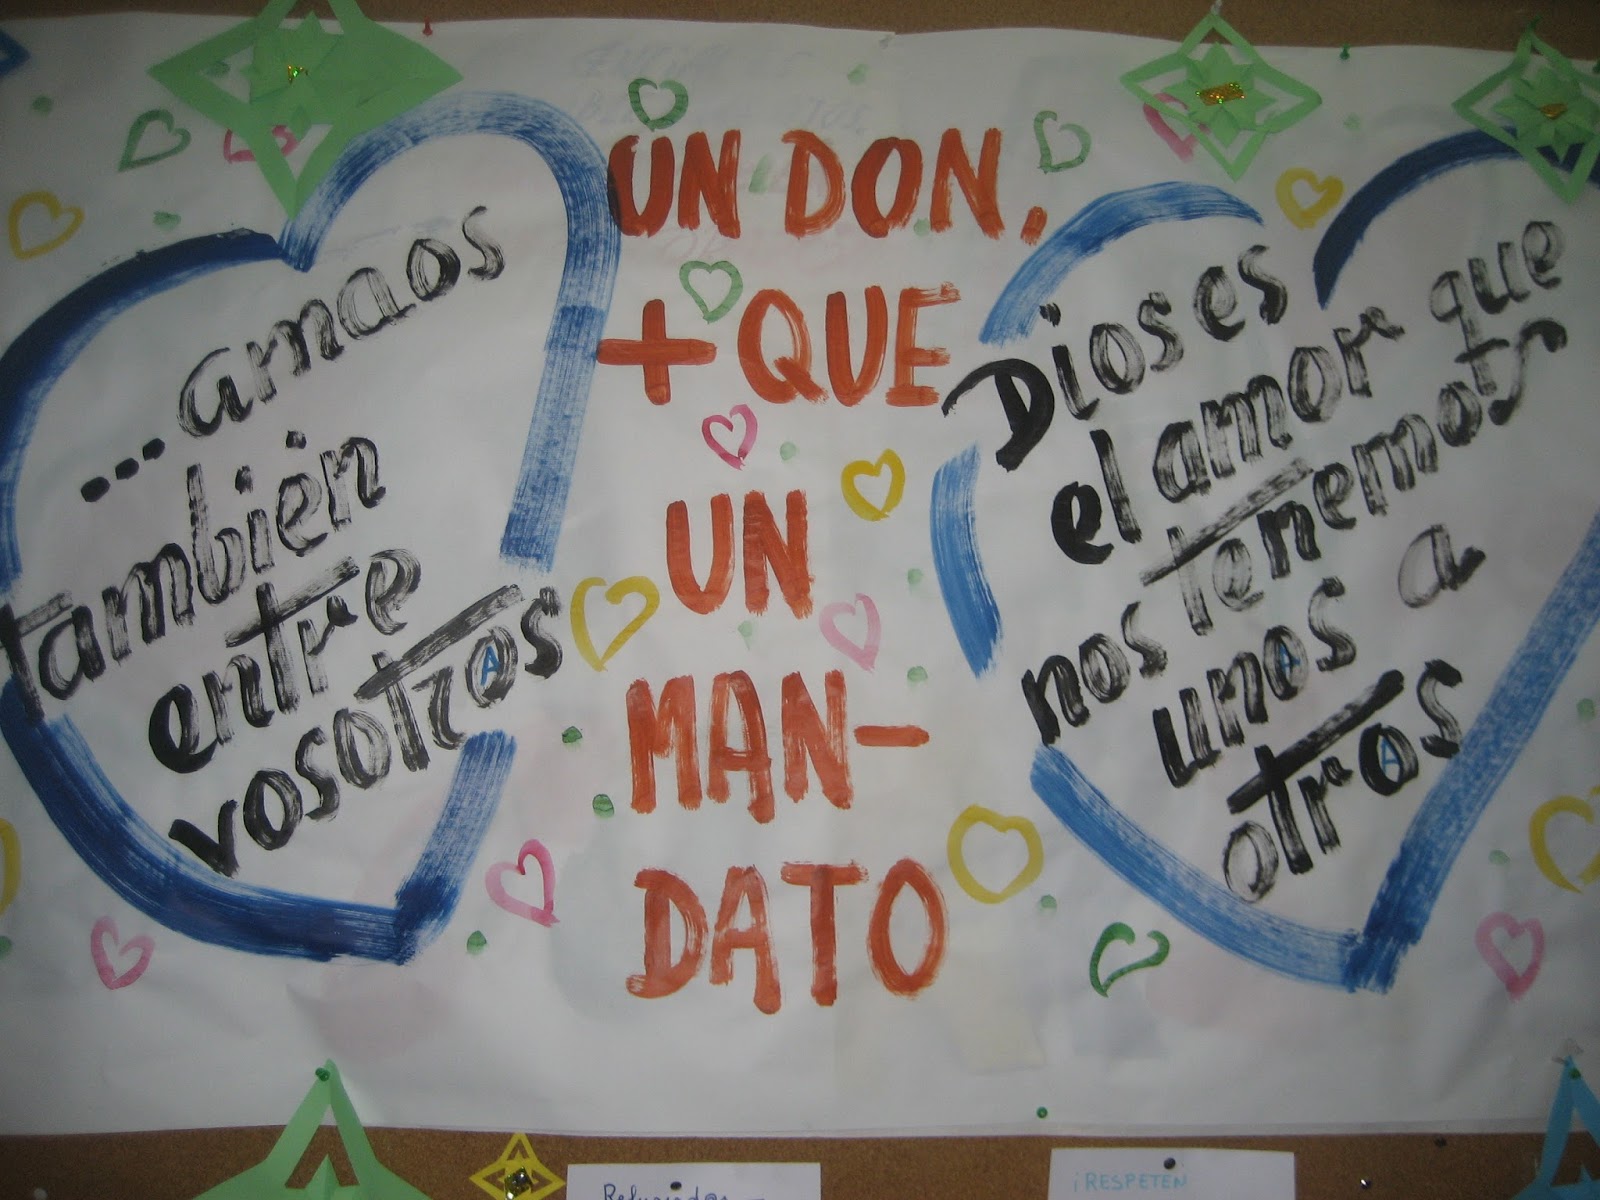 ...amaos
también
entre
vosotros
UN DON,
+ QUE
UN
MAN-
DATO
Dios es
el amor que
nos tenemos
unos a
otros
¡RESPETEN